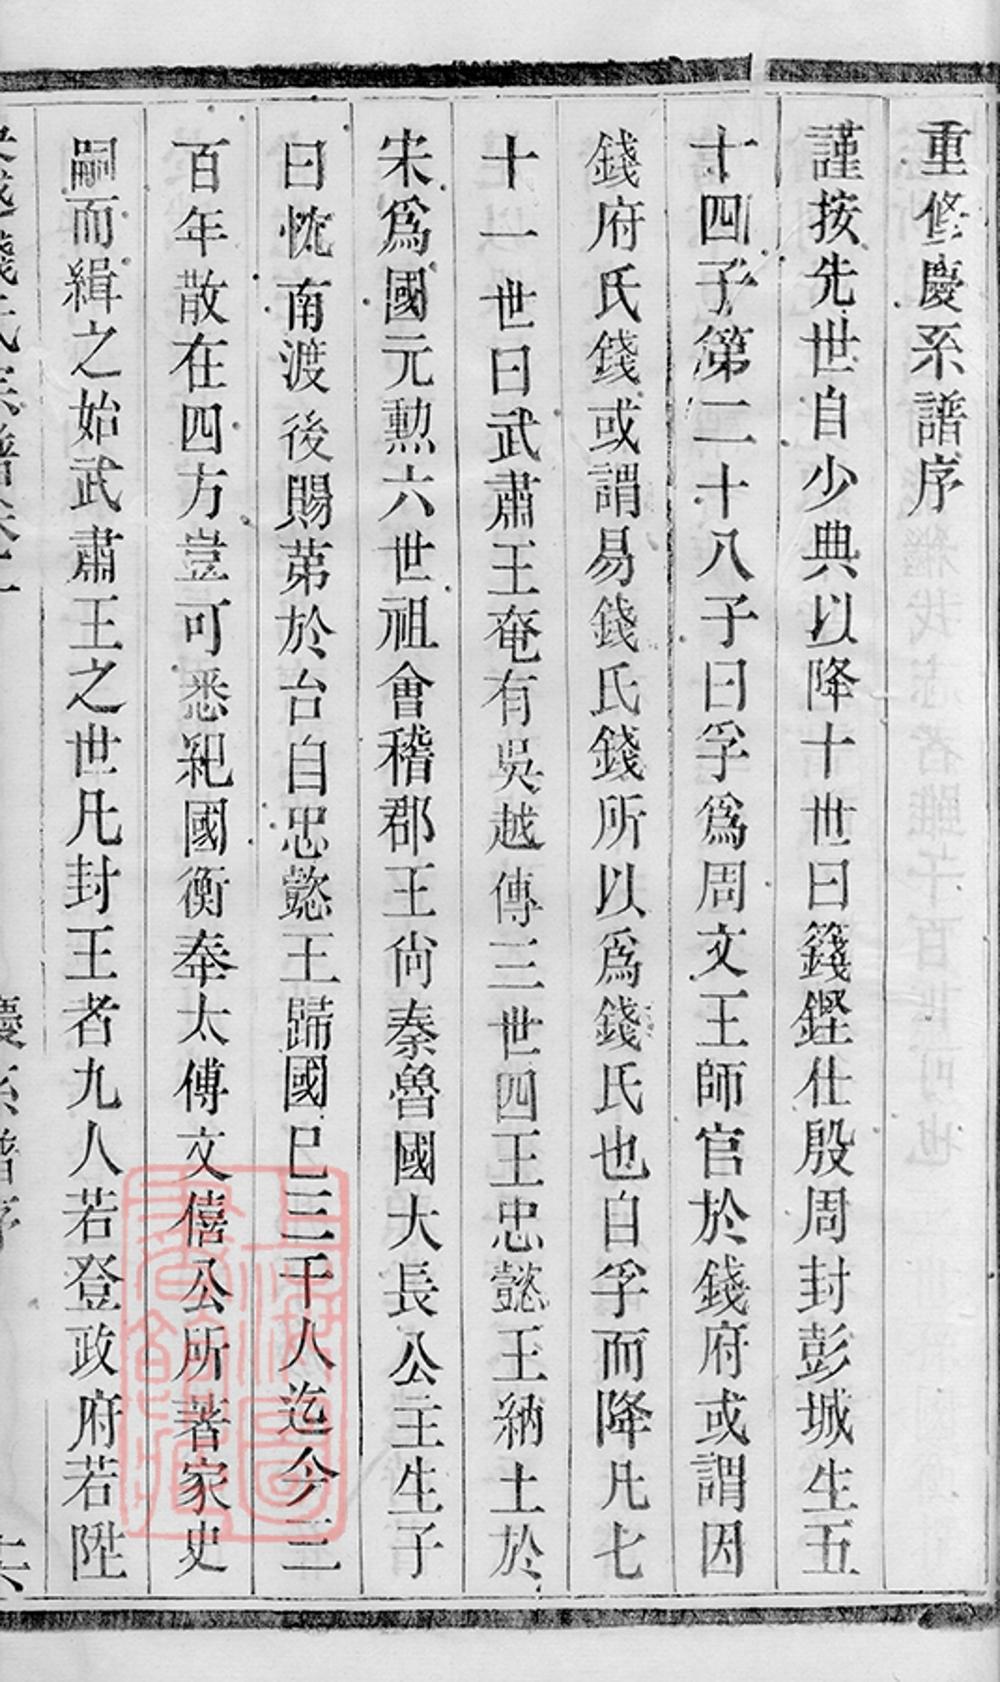 重修慶系譜序
謹按先世自少典以降十世曰籛鏗仕殷周封彭城生五
十四子第二十八子曰孚爲周文王師官於錢府或謂因
錢府氏錢或謂易籛氏錢所以爲錢氏也自孚而降凡七
十一世曰武肅王奄有吳越傳三世四王忠懿王納土於
宋爲國元勲六世祖會稽郡王尙秦魯國大長公主生子
曰忱南渡後賜苐於台自忠懿王歸國已三千人迄今三
百年散在四方豈可悉紀國衡奉太傅文僖公所著家史
嗣而緝之始武肅王之世凡封王者九人若登政府若陞
吳越錢氏宗譜卷一 慶系譜序 六
上海圖書館藏